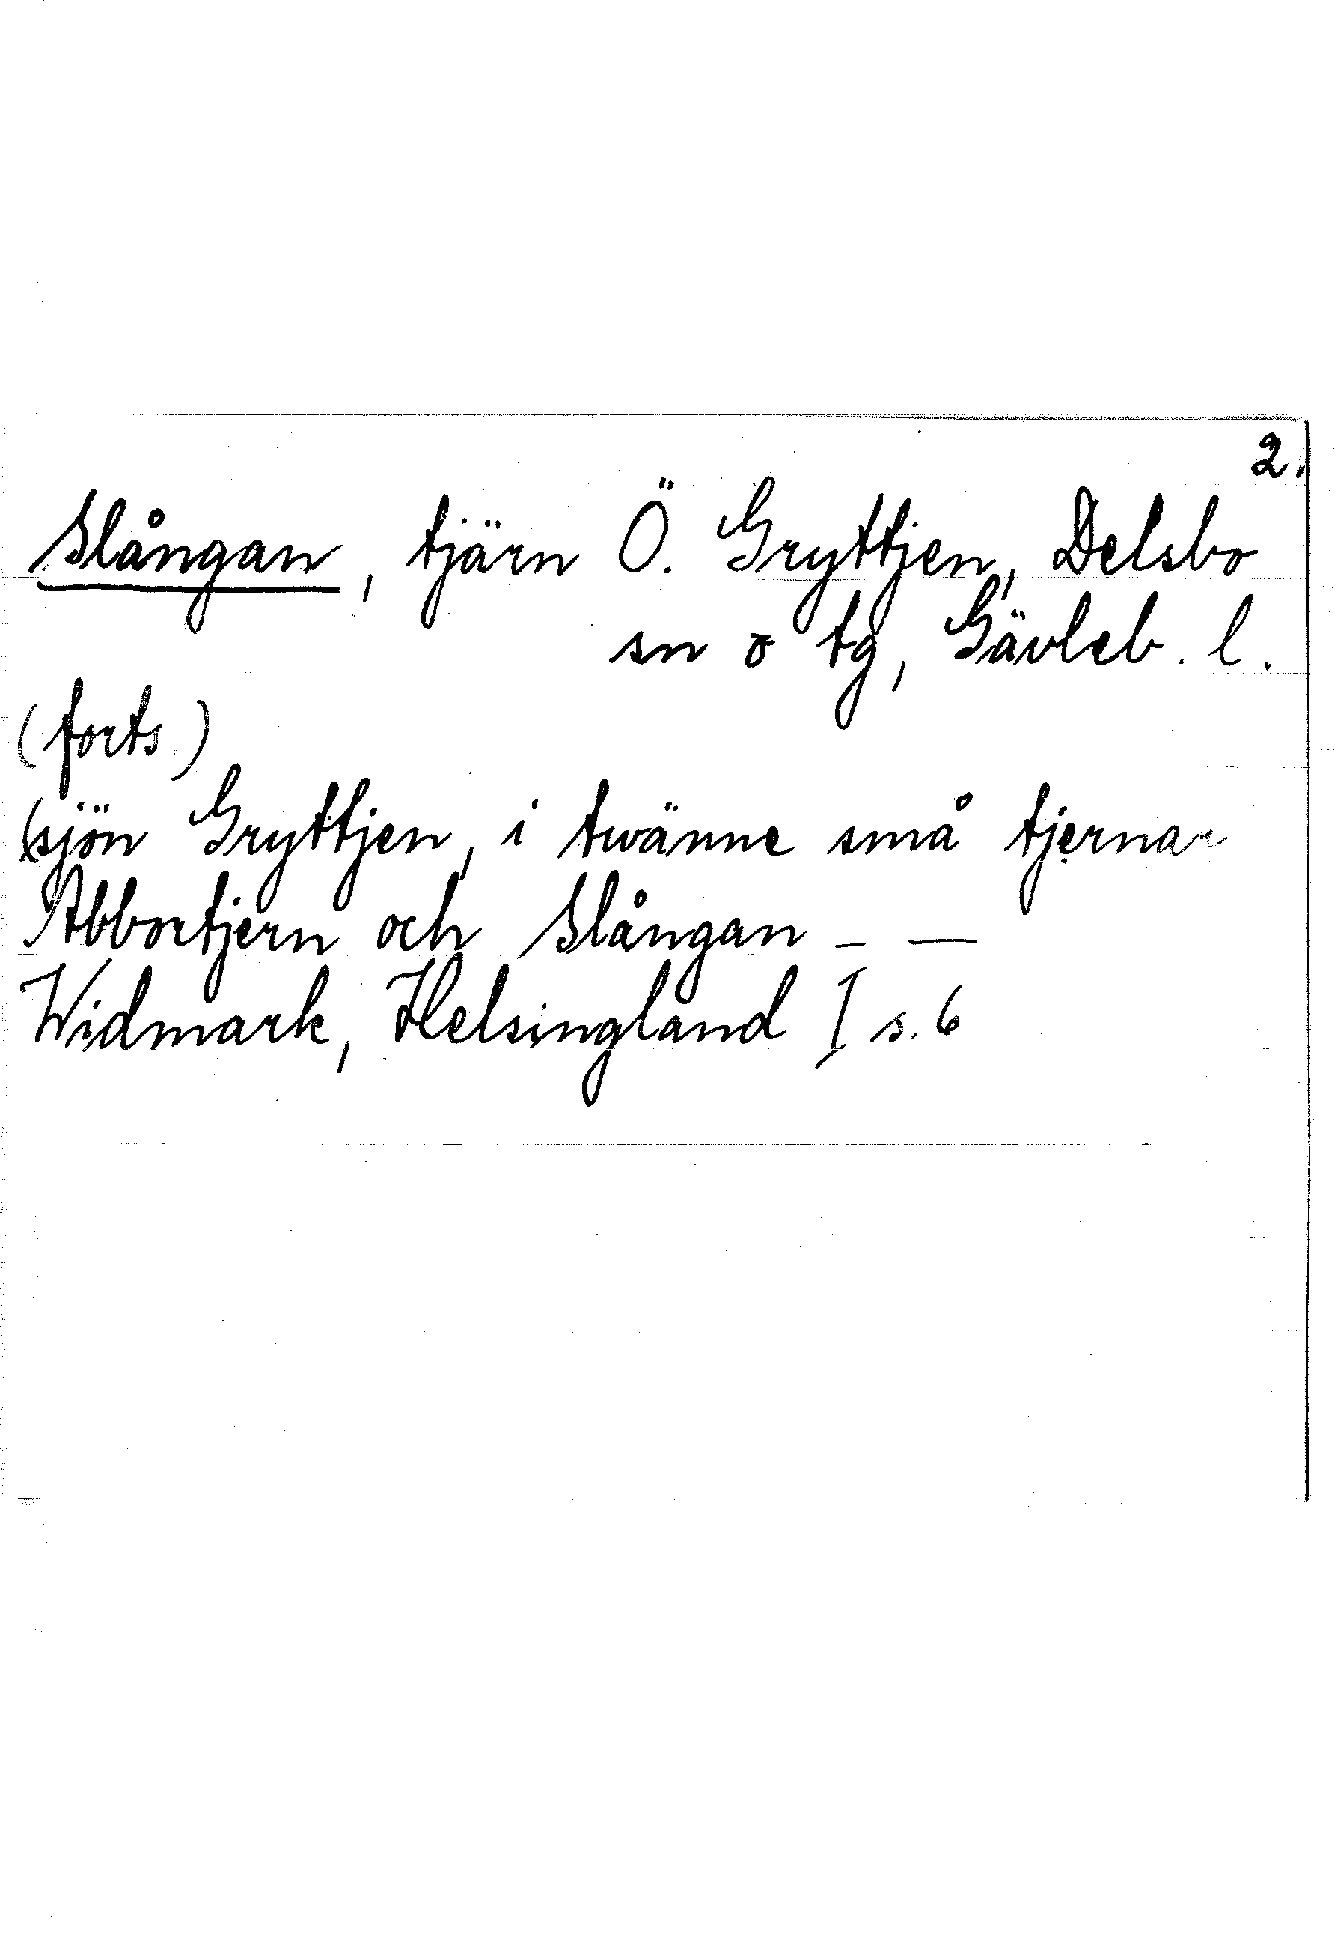 2.
Slången, tjärn Ö. Gryttjen, Delsbo
sn o tg, Gävleb. l.
(forts.)
(sjön Gryttjen, i twänne små tjernar
Abbortjern och Slångan – —
Widmark, Helsingland I s. 6